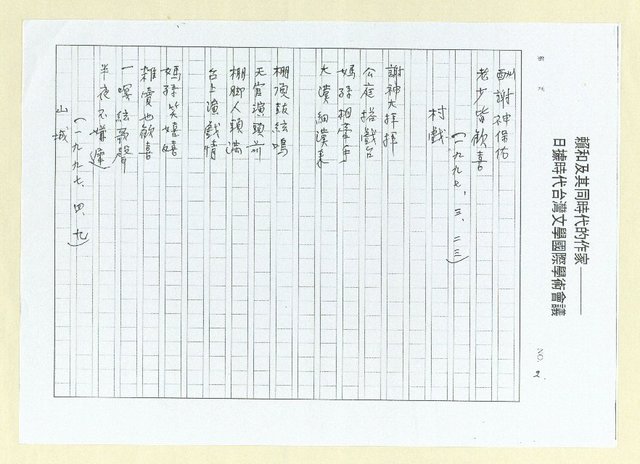 賴和及其同時代的作家——
日據時代台灣文學國際學術會議
NO. 2.
酬謝神保佑
老少皆歡喜
(一九九七、三、二三)
村戲
謝神大拜拜
公庭搭戲台
媽孫相牽手
大漢細漢來
棚頂鼓絃鳴
天官演頭前
棚腳人頭滿
台上演戲情
媽孫笑嘻嘻
雜賣也歡喜
一嘹絃歌聲
半夜不嫌遲
(一九九七、四、九)
山城